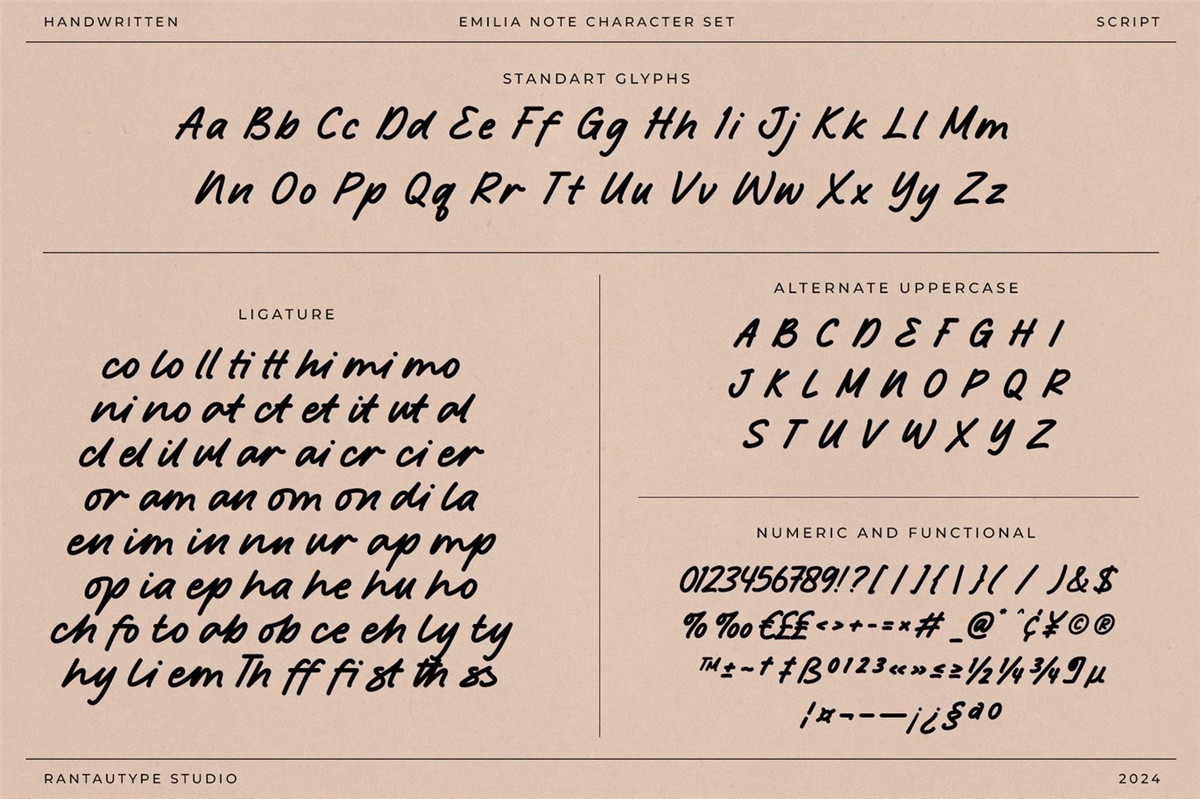 HANDWRITTEN
EMILIA NOTE CHARACTER SET
SCRIPT
STANDART GLYPHS
Aa Bb Cc Dd Ee Ff Gg Hh Ii Jj Kk Ll Mm
Nn Oo Pp Qq Rr Tt Uu Vv Ww Xx Yy Zz
LIGATURE
co lo ll ti tt hi mi mo
ni no at ct et it ut al
cl el il ul ar ai cr ci er
or am an om on di la
en im in nn ur ap mp
op ia ep ha he hu ho
ch fo to ab ob ce eh ly ty
hy li em Th ff fi st th ss
ALTERNATE UPPERCASE
A B C D E F G H I
J K L M N O P Q R
S T U V W X Y Z
NUMERIC AND FUNCTIONAL
0123456789!?[/]{|}(/)&$
%‰€££<>+-=×#_@*^¢¥©®
™±~†‡ß0123«»≤≥½¼¾¶µ
¦¤¬–—¡¿§ªº
RANTAUTYPE STUDIO
2024